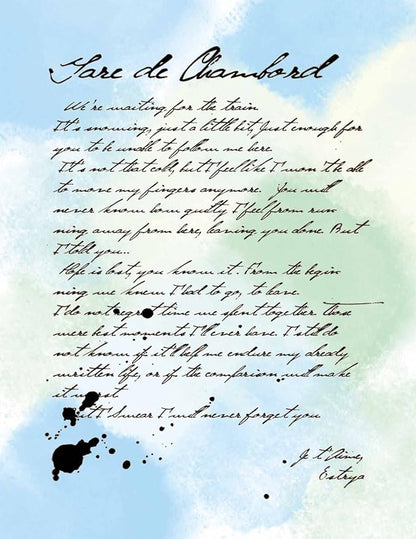 Gare de Chambord
We're waiting for the train
It's snowing, just a little bit, Just enough for
you to be unable to follow me here.
It's not that cold, but I feel like I won't be able
to move my fingers anymore. You will
never know how guilty I feel from run
ning away from here, leaving you alone. But
I told you...
Hope is lost, you know it. From the begin
ning, we knew I had to go, to leave.
I do not regret time we spent together. Those
were best moments I'll ever have. I still do
not know if it'll help me endure my already
written life, or if the comparison will make
it worst
But I Swear I will never forget you
Je t'Aime,
Estrya